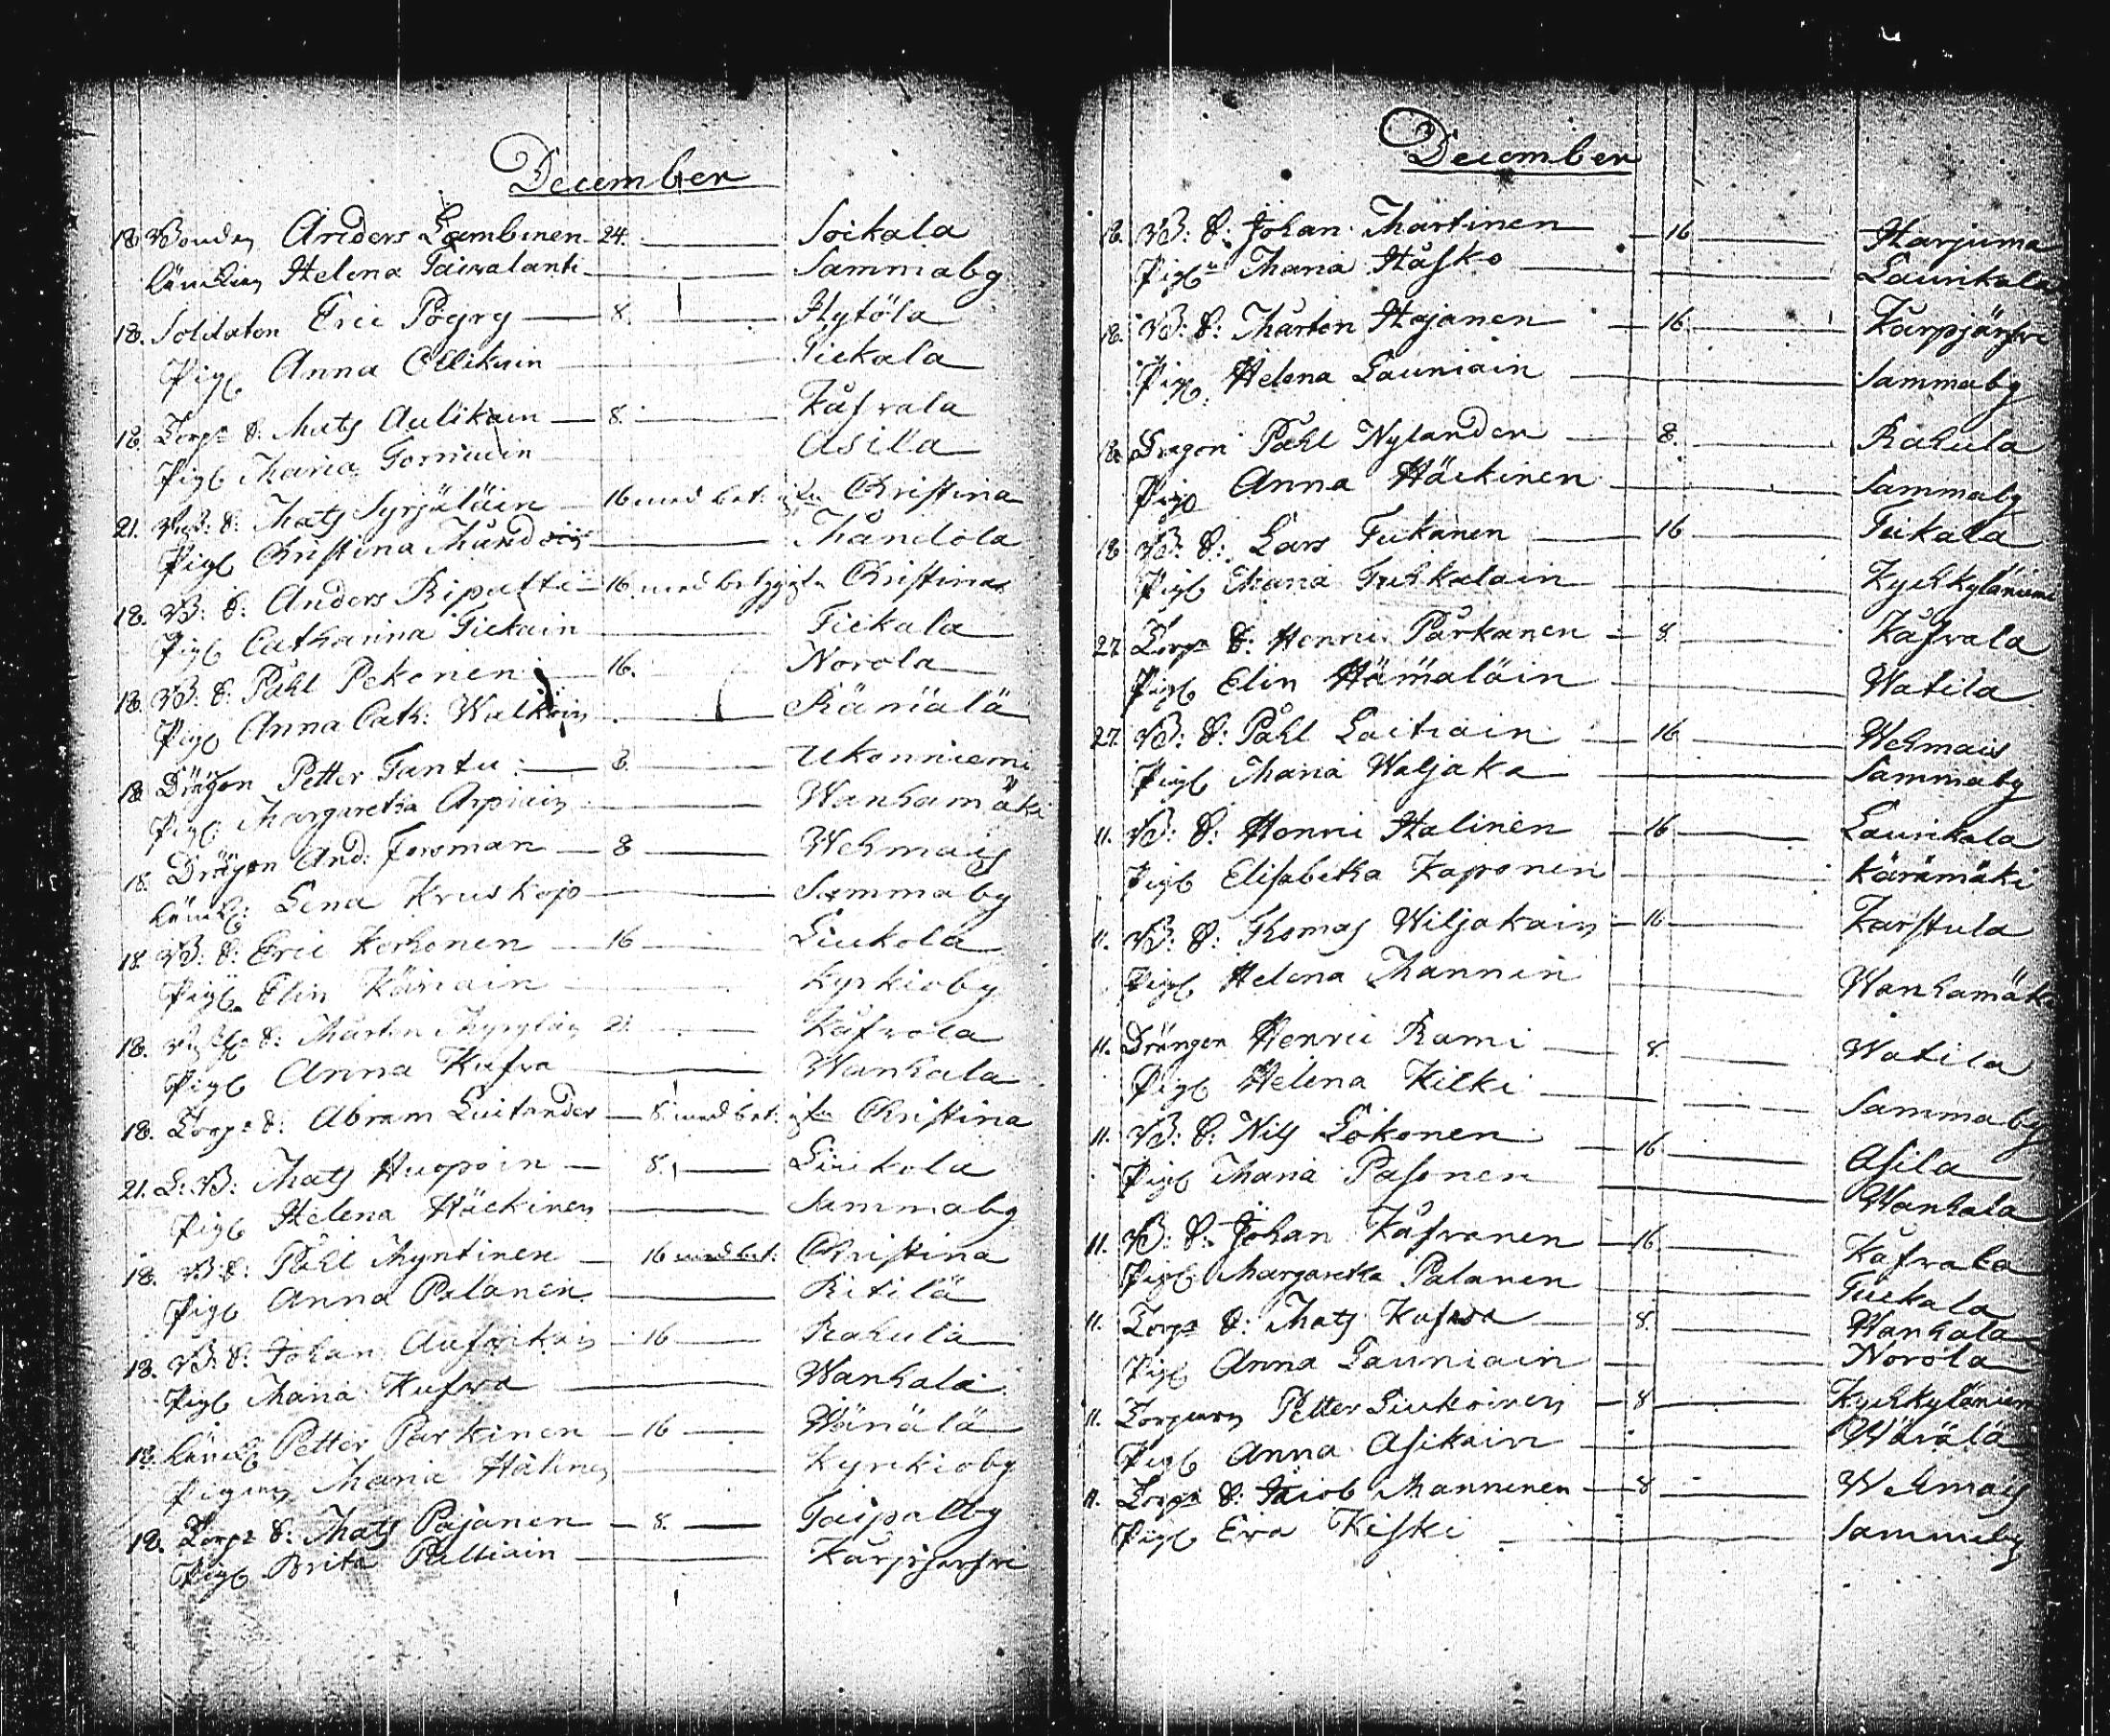 December
18. Bonden Anders Lambinen 24. Soikala
Enklin Helena Taivalanti Sammaby
18. Soldaten Eric Pöyry 8. Hytölä
Pig. Anna Ollikain Tiekala
18. Torp. S: Mats Aulikain 8. Kåfvala
Pig. Maria Torniain Asila
21. B: S: Mats Syrjäläin 16 med bet: ifr. Christina
Pig. Christina Mundoin Mandola
18. B: S: Anders Ripatti 16. med betyg ifr. Christina
Pig. Catharina Tiekain Tiekala
18. B: S: Påhl Pekonen 16. Norola
Pig. Anna Cath: Walkoin Rämälä
18. Drägon Petter Tantu 8. Ukonniemi
Pig. Margaretha Arpiain Wanhamäki
18. Drägon And: Forsman 8 Wehmais
Enk. Lena Kruskopo Sammaby
18. B: S: Eric Kerhonen 16 Liukola
Pig. Elin Käriain Kyrkioby
18. S: Mårten Myryläin 21. Kåfvola
Pig. Anna Kufva Wanhala
18. Torp. S: Abram Luitander 8. med bet: ifr Christina
21. L: B: Mats Huopoin 8. Liukola
Pig. Helena Häckinen Sammaby
18. B: S: Påhl Myntinen 16 med bet: Christina
Pig. Anna Pelanen Ritilä
18. B: S: Johan Aufvikain 16 Rahula
Pig. Maria Kufva Wanhala
18. Enkl. Petter Parkinen 16 Wänälä
Pigan Maria Halinen Kyrckioby
18. Torp. S: Mats Pajanen 8. Taipalby
Pig. Brita Pelliain Karpjerfvi
December
18. B: S: Johan Martinen 16 Harjuma
Pig. Maria Håsko Laurikala
18. B: S: Mårten Hajanen 16 Karpjärfvi
Pig. Helena Launiain Sammaby
18. Dragon Påhl Nylander 8. Rahula
Pig. Anna Häckinen Sammaby
18 B: S: Lars Tukanen 16 Tukala
Pig. Maria Tuhkalain Kyhkyläniemi
27. Torp. S: Henric Pärkanen 8. Kåfvala
Pig. Elin Hämäläin Watila
27. B: S: Påhl Laitiain 16 Wehmais
Pig. Maria Waljaka Sammaby
11. B: S: Henric Halinen 16 Laurikala
Pig. Elisabetha Kaponen Käränmäki
11. B: S: Thomas Wiljakain 16 Karstula
Pig. Helena Mannin Wanhamäki
11. Drängen Henric Rami 8. Watila
Pig. Helena Kilki Sammaby
11. B: S: Nils Lokonen 16 Asila
Pig. Maria Pasonen Wanhala
11. B: S: Johan Kåfvanen 16 Kåfvala
Pig. Margaretha Palanen Tuckala
11. Torp. S: Mats Kufwa 8. Wanhala
Pig. Anna Launiain Norola
11. Torparen Petter Liukoinen 8 Kyhkyläniemi
Pig. Anna Asikain Wärälä
11. Torp. S: Jacob Manninen 8 Wehmais
Pig. Eva Kiski Sammaby